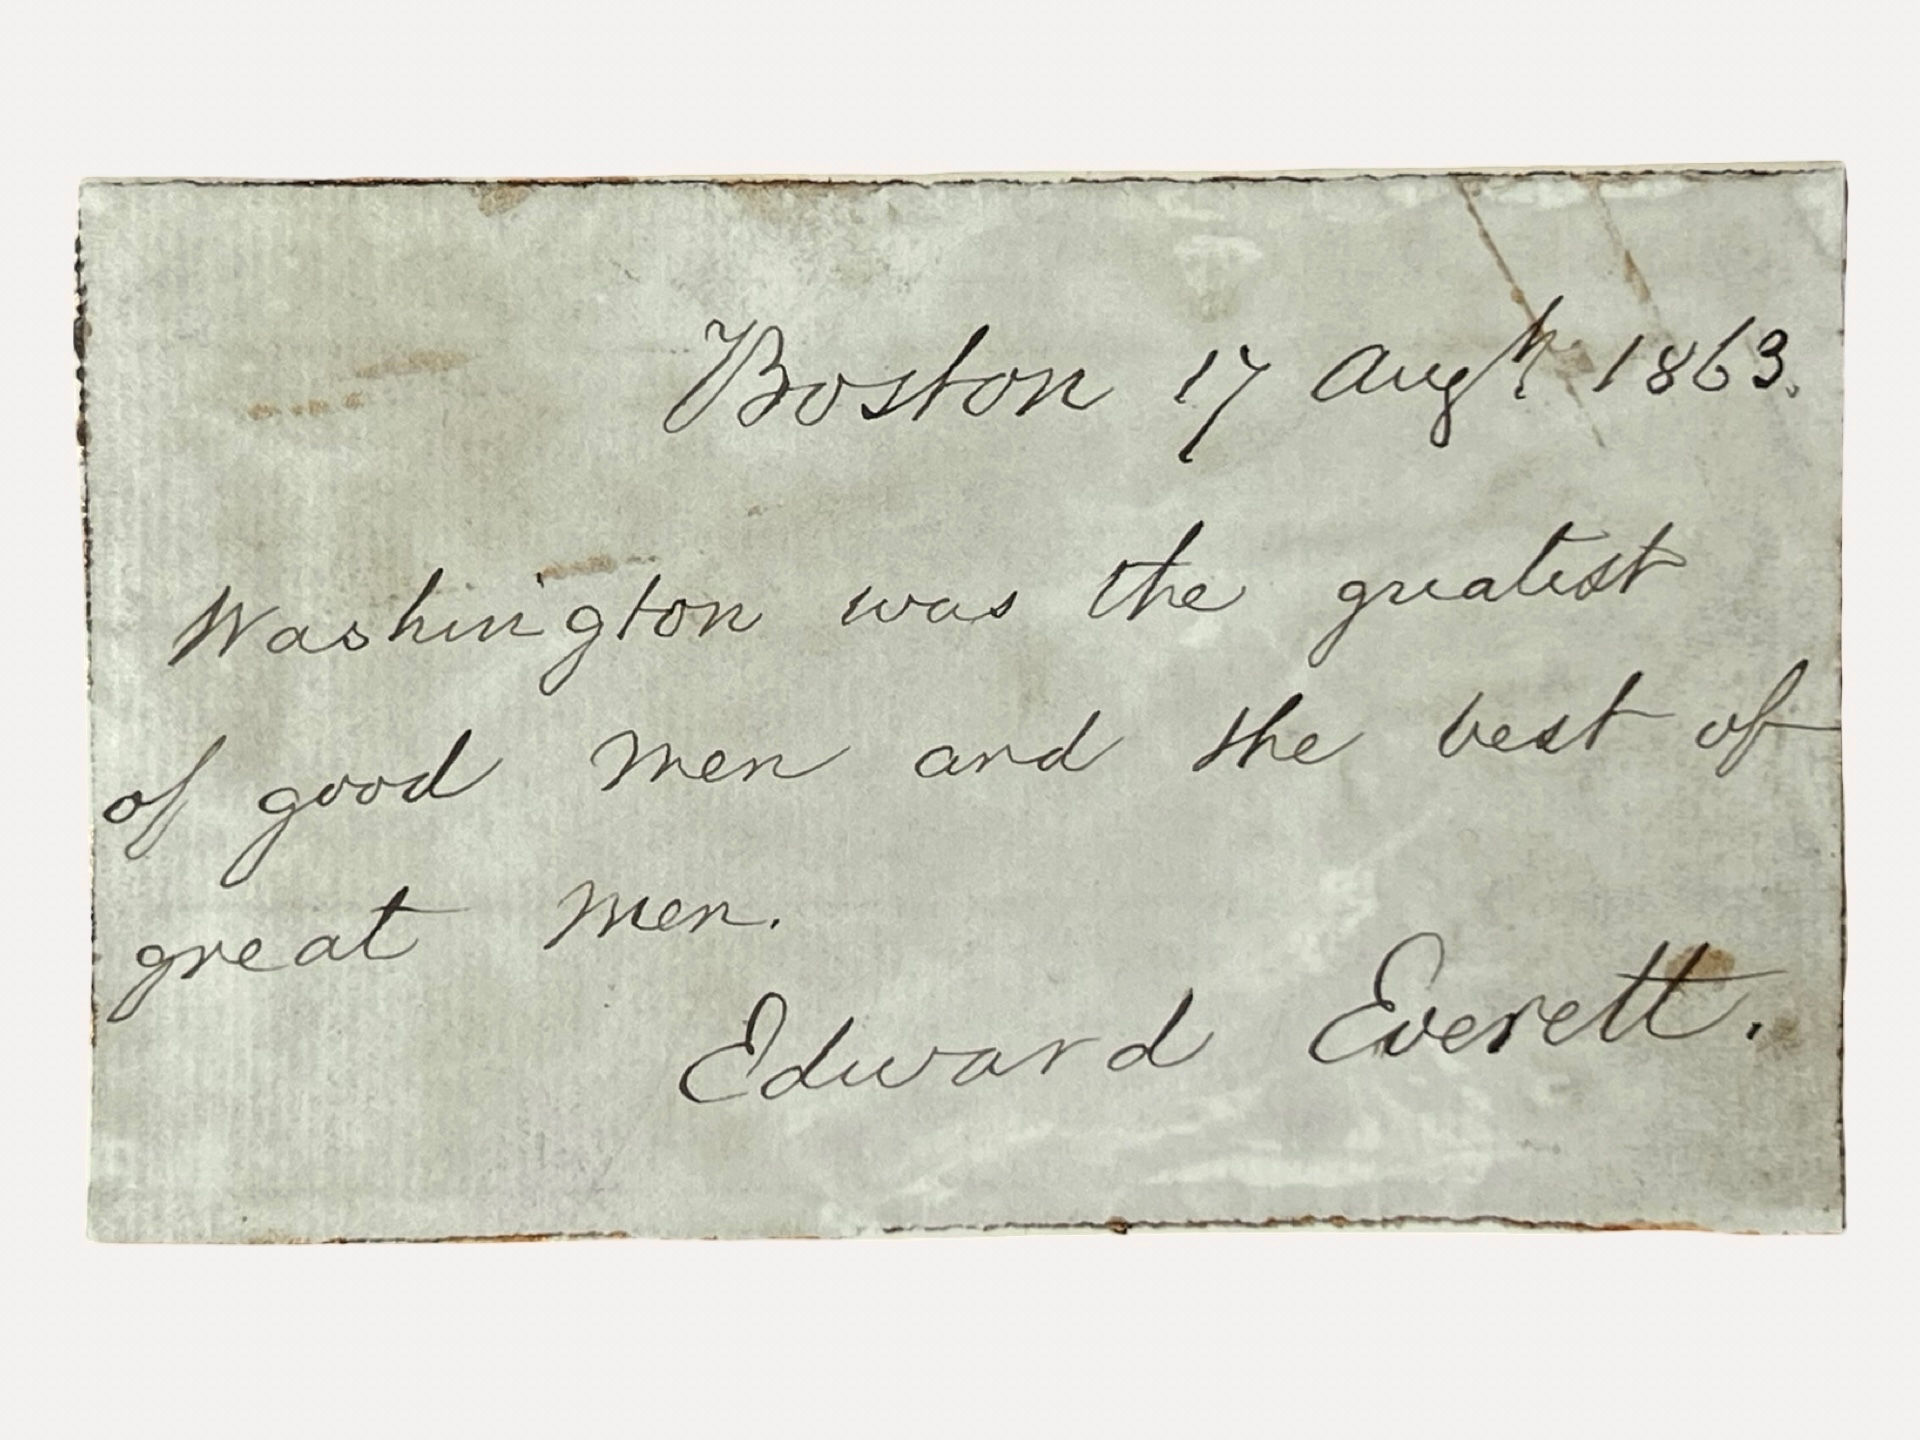 Boston 17 Augt. 1863.
Washington was the greatest
of good men and the best of
great men.
Edward Everett.